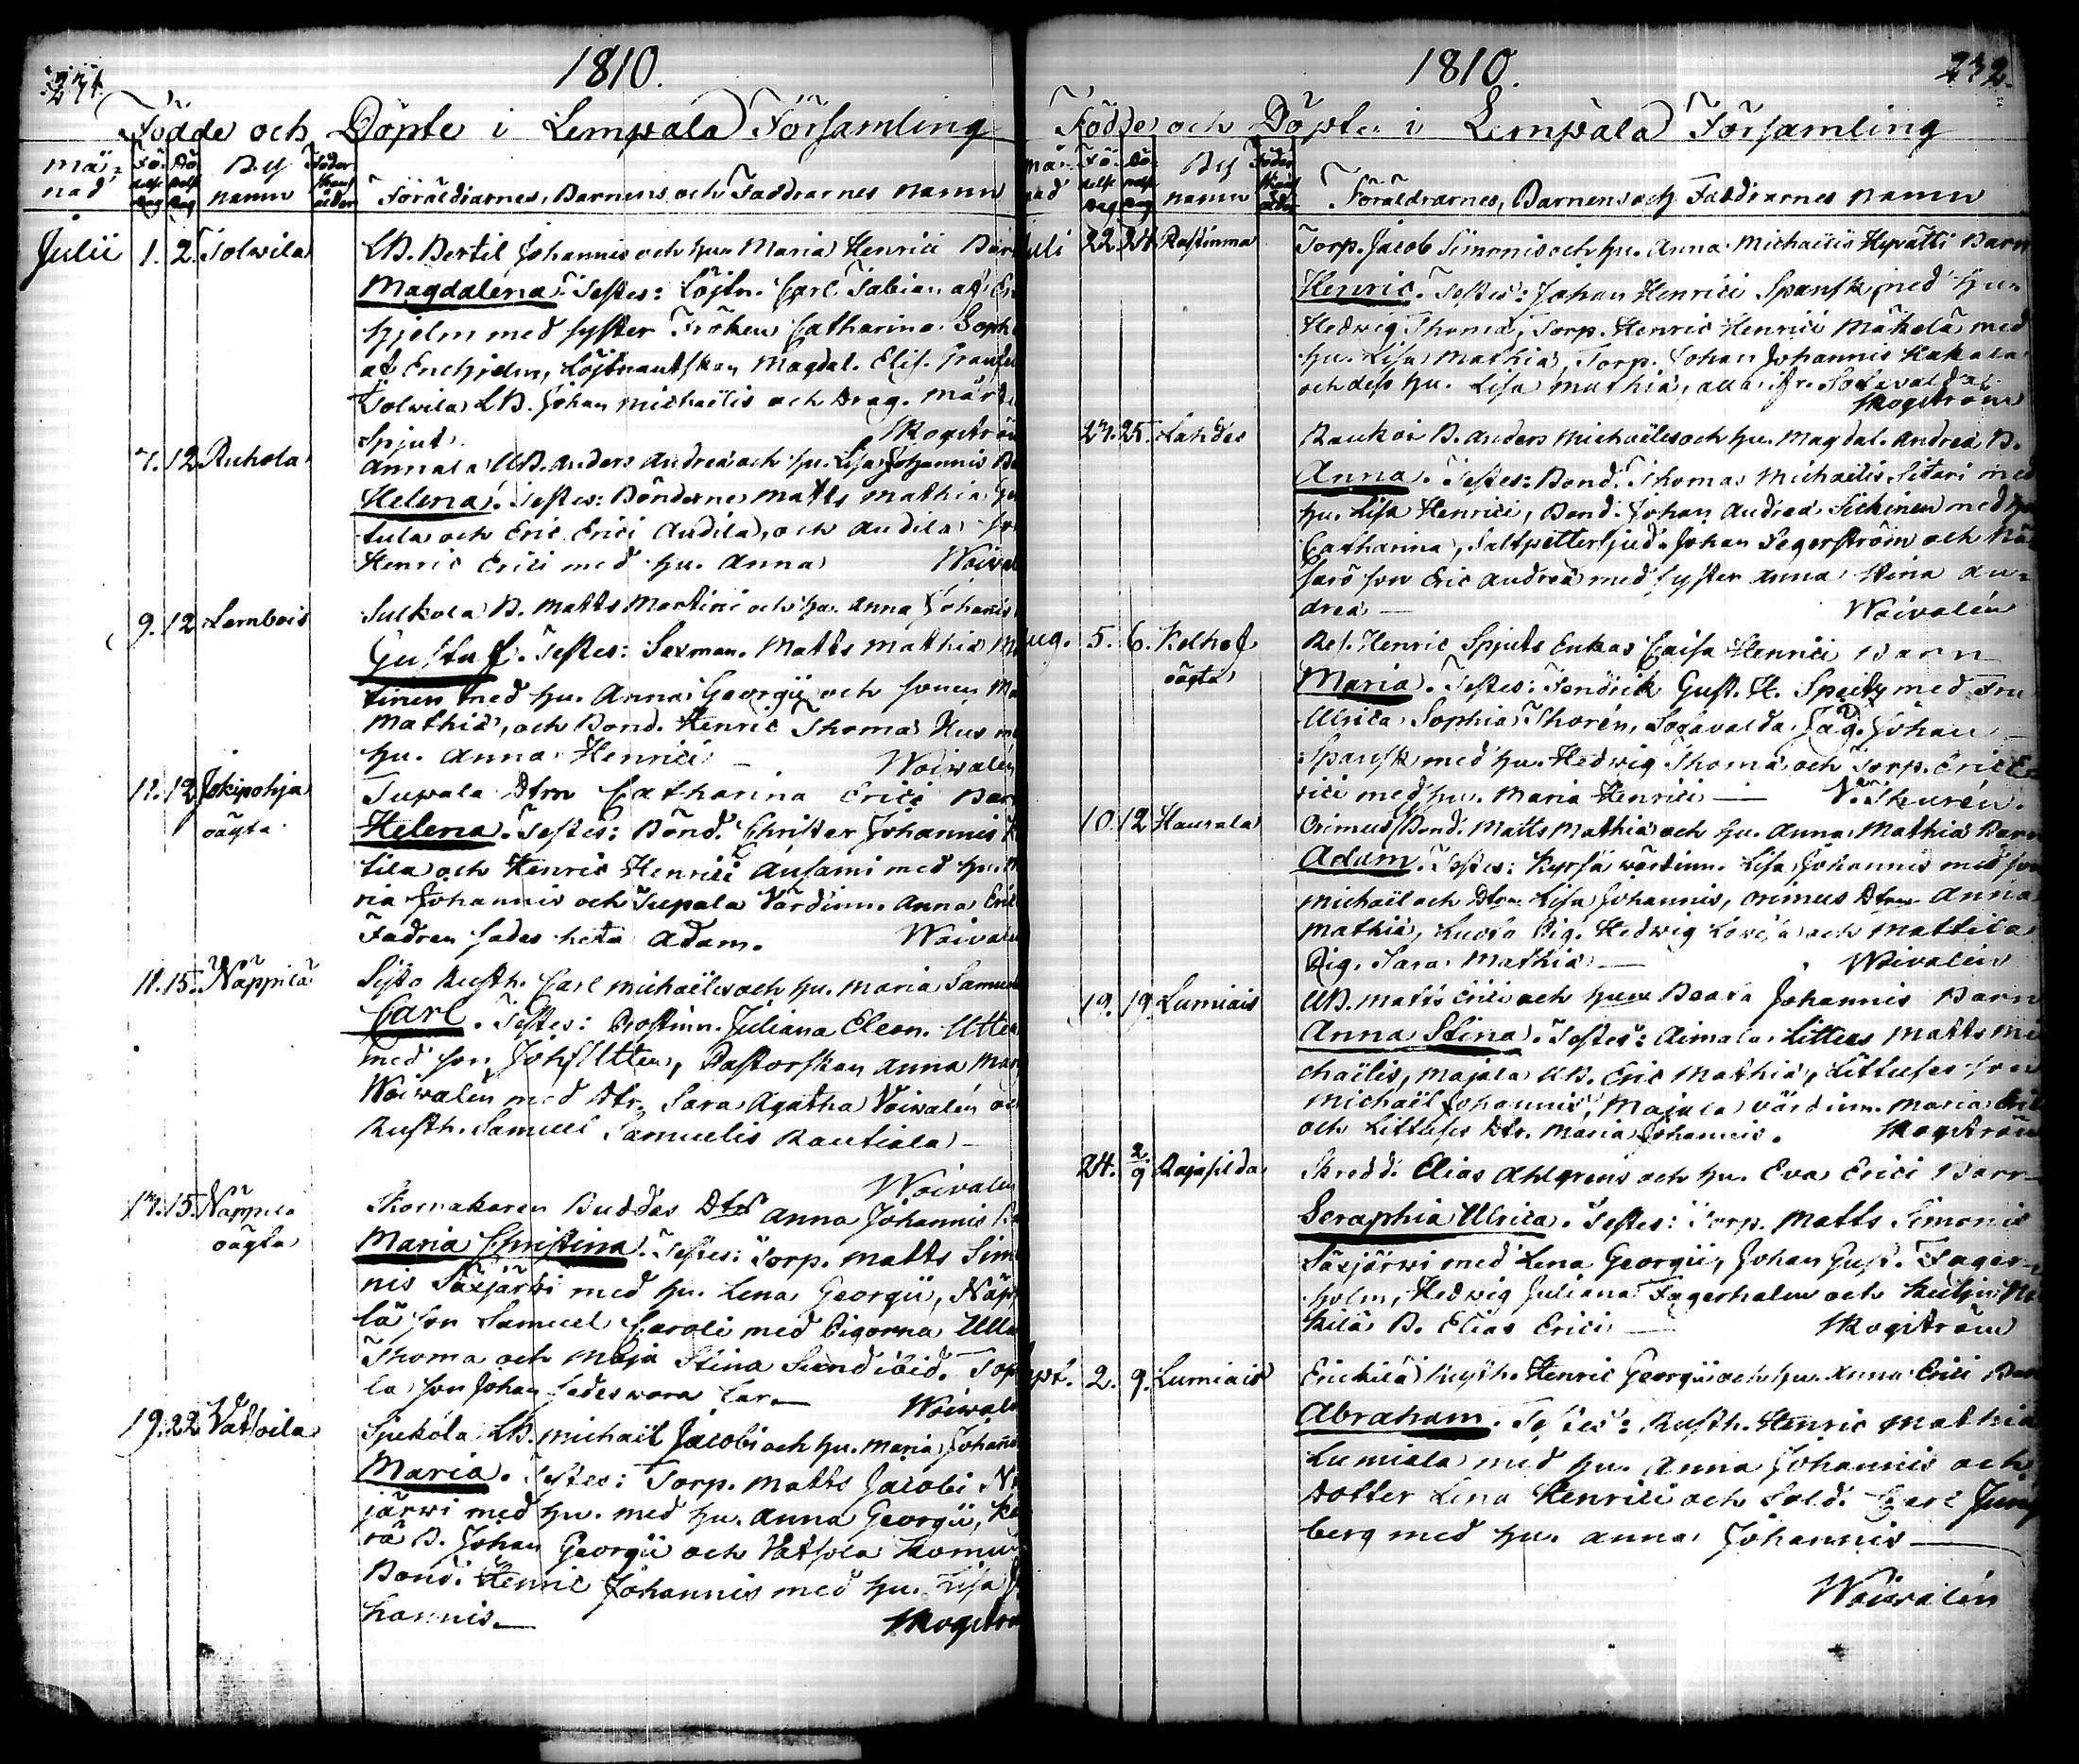 231.
1810.
Födde och Döpte i Lempala Församling
Må=
nad
Fö-
delse
Dag
Dö
pelse
Dag
By
namn
Moder
skans
ålder
Föräldrarnes, Barnens och Faddrarnes namn
Julii 1. 2. Tolwila
LB. Bertil Johannis och hu. Maria Henrici Bar
Magdalena. Testes: Löjtn. Carl Fabian af En
hjelm med syster Fröken Catharina Soph
af Enehjelm, Löjtnantskan Magdal. Elis.
Tolwila LB. Johan Michaëlis och Drag. Mårt
Spjut. Skogströ
7. 12 Ruhola
Annala UB. Anders Andreæ och hu. Lisa Johannis B
Helena. Testes: Bönderne Matts Mathiæ
tula och Eric Erici Audila, och Audila so
Henric Erici med hu. Anna Woival
9. 12 Lembois
Sulkola B. Matts Martini och hu. Anna Johanis
Gustaf. Testes: Sexman. Matts Mathiæ M
tinen med hu. Anna Georgii och sonen Ma
Mathiæ, och Bond. Henric Thomæ Hus m
hu. Anna Henrici — Woivalén
11. 12 Jokipohja
oägta
Tupala Dtrn Catharina Erici Bar
Helena. Testes: Bönd. Christer Johannis K
tila och Henric Henrici Ansami med hu. M
ria Johannis och Tupala Värdinn. Anna Eric
Fadren sades heta Adam. Woival
11. 15. Näppilä
Sipo Rusth. Carl Michaëlis och hu. Maria Samuel
Carl. Testes: Prostinn. Juliana Eleon. Utter
med son Joh. Utter, Pastorskan Anna Mar
Woivalén med Dtr. Sara Agatha Voivalén oc
Rusth. Samuel Samuelis Rautiala —
Woivalen
14. 15. Näppilä
oägta
Skomakaren Buddas Dtr Anna Johannis Ba
Maria Christina. Testes: Torp. Matts Simo
nis Säxjärvi med hu. Lena Georgii, Näpp
lä son Samuel Caroli med Pigorna Ulla
Thomæ och Maja Stina Sundivid. Top
la son Johan sades wara Far. — Woival
19. 22 Vattoila
Sjukola LB. Michaël Jacobi och hu. Maria Johann
Maria. Testes: Torp. Matts Jacobi N
järwi med hu. med hu. Anna Georgii, K
rä B. Johan Georgii och Vatsola
Bond. Henric Johannis med hu. Lisa J
hannis. — Skogströ
1810.
232.
Födde och Döpte i Lempala Församling
Må-
nad
Fö-
delse
Dag
Dö-
pelse
Dag
By
namn
Moder
skans
ålder
Föräldrarnes, Barnens och Faddrarnes namn
uli 22. 24 Rastinma
Torp. Jacob Simonis och hu. Anna Michaëlis Hyvätti Barn
Henric. Testes: Johan Henrici Spansk med hu.
Hedwig Thomæ, Torp. Henric Henrici Mäkelä med
hu. Lisa Mathiæ, Torp. Johan Johannis Kakala
och dess hu. Lisa Mathiæ, alla fr. Sotavalda.
Skogström
24. 25. Lahdes
Kaukoi B. Anders Michaëlis och hu. Magdal. Andreæ B.
Anna. Testes: Bond. Thomas Michaëlis Sitari med
hu. Lisa Henrici, Bond. Johan Andreæ Sickinen med hu
Catharina, Saltpettersjud. Johan Segerström och
son Eric Andreæ med syster Anna Stina An=
dreæ — Woivalén
ug. 5. 6. Kelho
oägta
Res. Henric Spjuts Enkas Caisa Henrici Barn
Maria. Testes: Fendrik Gust. H. Speitz med Fru
Ulrica Sophia Thorén, Sotavalda Jäg. Johan
Spansk med hu. Hedwig Thomæ och Torp. Eric E=
rici med hu. Maria Henrici — N. Thurén.
10. 12 Haurala
Orimus Bond. Matts Mathiæ och hu. Anna Mathiæ Barn
Adam. Testes: Kyrsä värdinn. Lisa Johannis med son
Michaël och Dtrn Lisa Johannis, Orimus Dtrn Anna
Mathiæ, Kuoto Pig. Hedwig och Mattila
Pig. Sara Mathiæ — Woivalén
19. 19. Lumiais
UB. Matts Erici och hu Beata Johannis Barn
Anna Stina. Testes: Aimala Littus Matts Mi
chaëlis, Majala UB. Eric Mathiæ, Littuses son
Michaël Johannis, Majala värdinn. Maria Eric
och Littuses Dtr. Maria Johannis. Skogström
24. 2/9 Rajasilda
Skredd. Elias Ahlgrens och hu. Eva Erici Barn
Seraphia Ulrica. Testes: Torp. Matts Simonis
Säxjärwi med Lena Georgii, Johan Gust. Fager-
holm, Hedwig Juliana Fagerholm och
kilä B. Elias Erici — Skogström
pt. 2. 9. Lumiais
Erickilä Rusth. Henric Georgii och hu. Anna Erici Bar
Abraham. Testes: Rusth. Henric Mathiæ
Lumiala med hu. Anna Johannis och
Dotter Lena Henrici och Sold. Carl Jung
berg med hu. Anna Johannis —
Woivalén